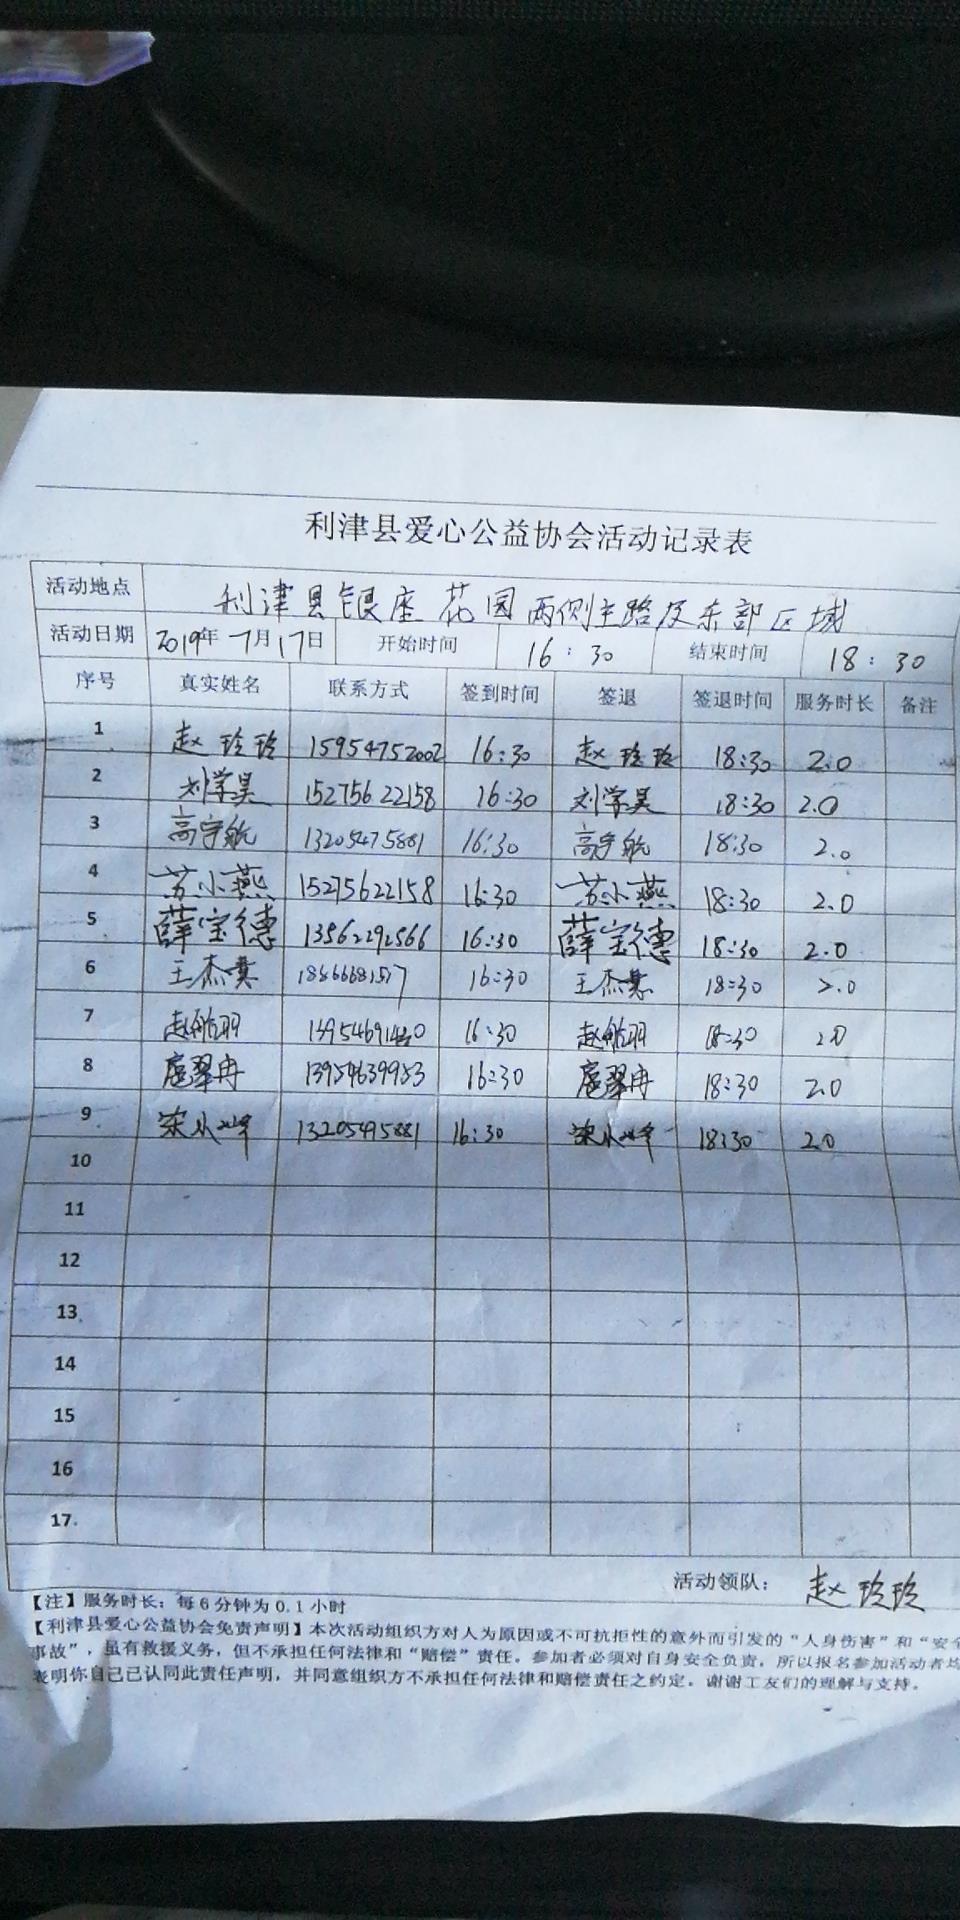 利津县爱心公益协会活动记录表
活动地点 利津县银座花园两侧主路及东部区域
活动日期 2019年7月17日 开始时间 16:30 结束时间 18:30
序号 真实姓名 联系方式 签到时间 签退 签退时间 服务时长 备注
1 赵玲玲 15954752002 16:30 赵玲玲 18:30 2.0
2 刘学昊 15275622158 16:30 刘学昊 18:30 2.0
3 高宇航 13205475881 16:30 高宇航 18:30 2.0
4 苏小燕 15275622158 16:30 苏小燕 18:30 2.0
5 薛宝德 13562292566 16:30 薛宝德 18:30 2.0
6 王杰 16:30 王杰 18:30 2.0
7 赵航羽 16:30 赵航羽 18:30 2.0
8 翠冉 13954639953 16:30 翠冉 18:30 2.0
9 13205495881 16:30 18:30 2.0
10
11
12
13
14
15
16
17
活动领队： 赵玲玲
【注】服务时长：每6分钟为0.1小时
【利津县爱心公益协会免责声明】本次活动组织方对人为原因或不可抗拒性的意外而引发的“人身伤害”和“安全
事故”，虽有救援义务，但不承担任何法律和“赔偿”责任。参加者必须对自身安全负责，所以报名参加活动者均
表明你自己已认同此责任声明，并同意组织方不承担任何法律和赔偿责任之约定。谢谢工友们的理解与支持。